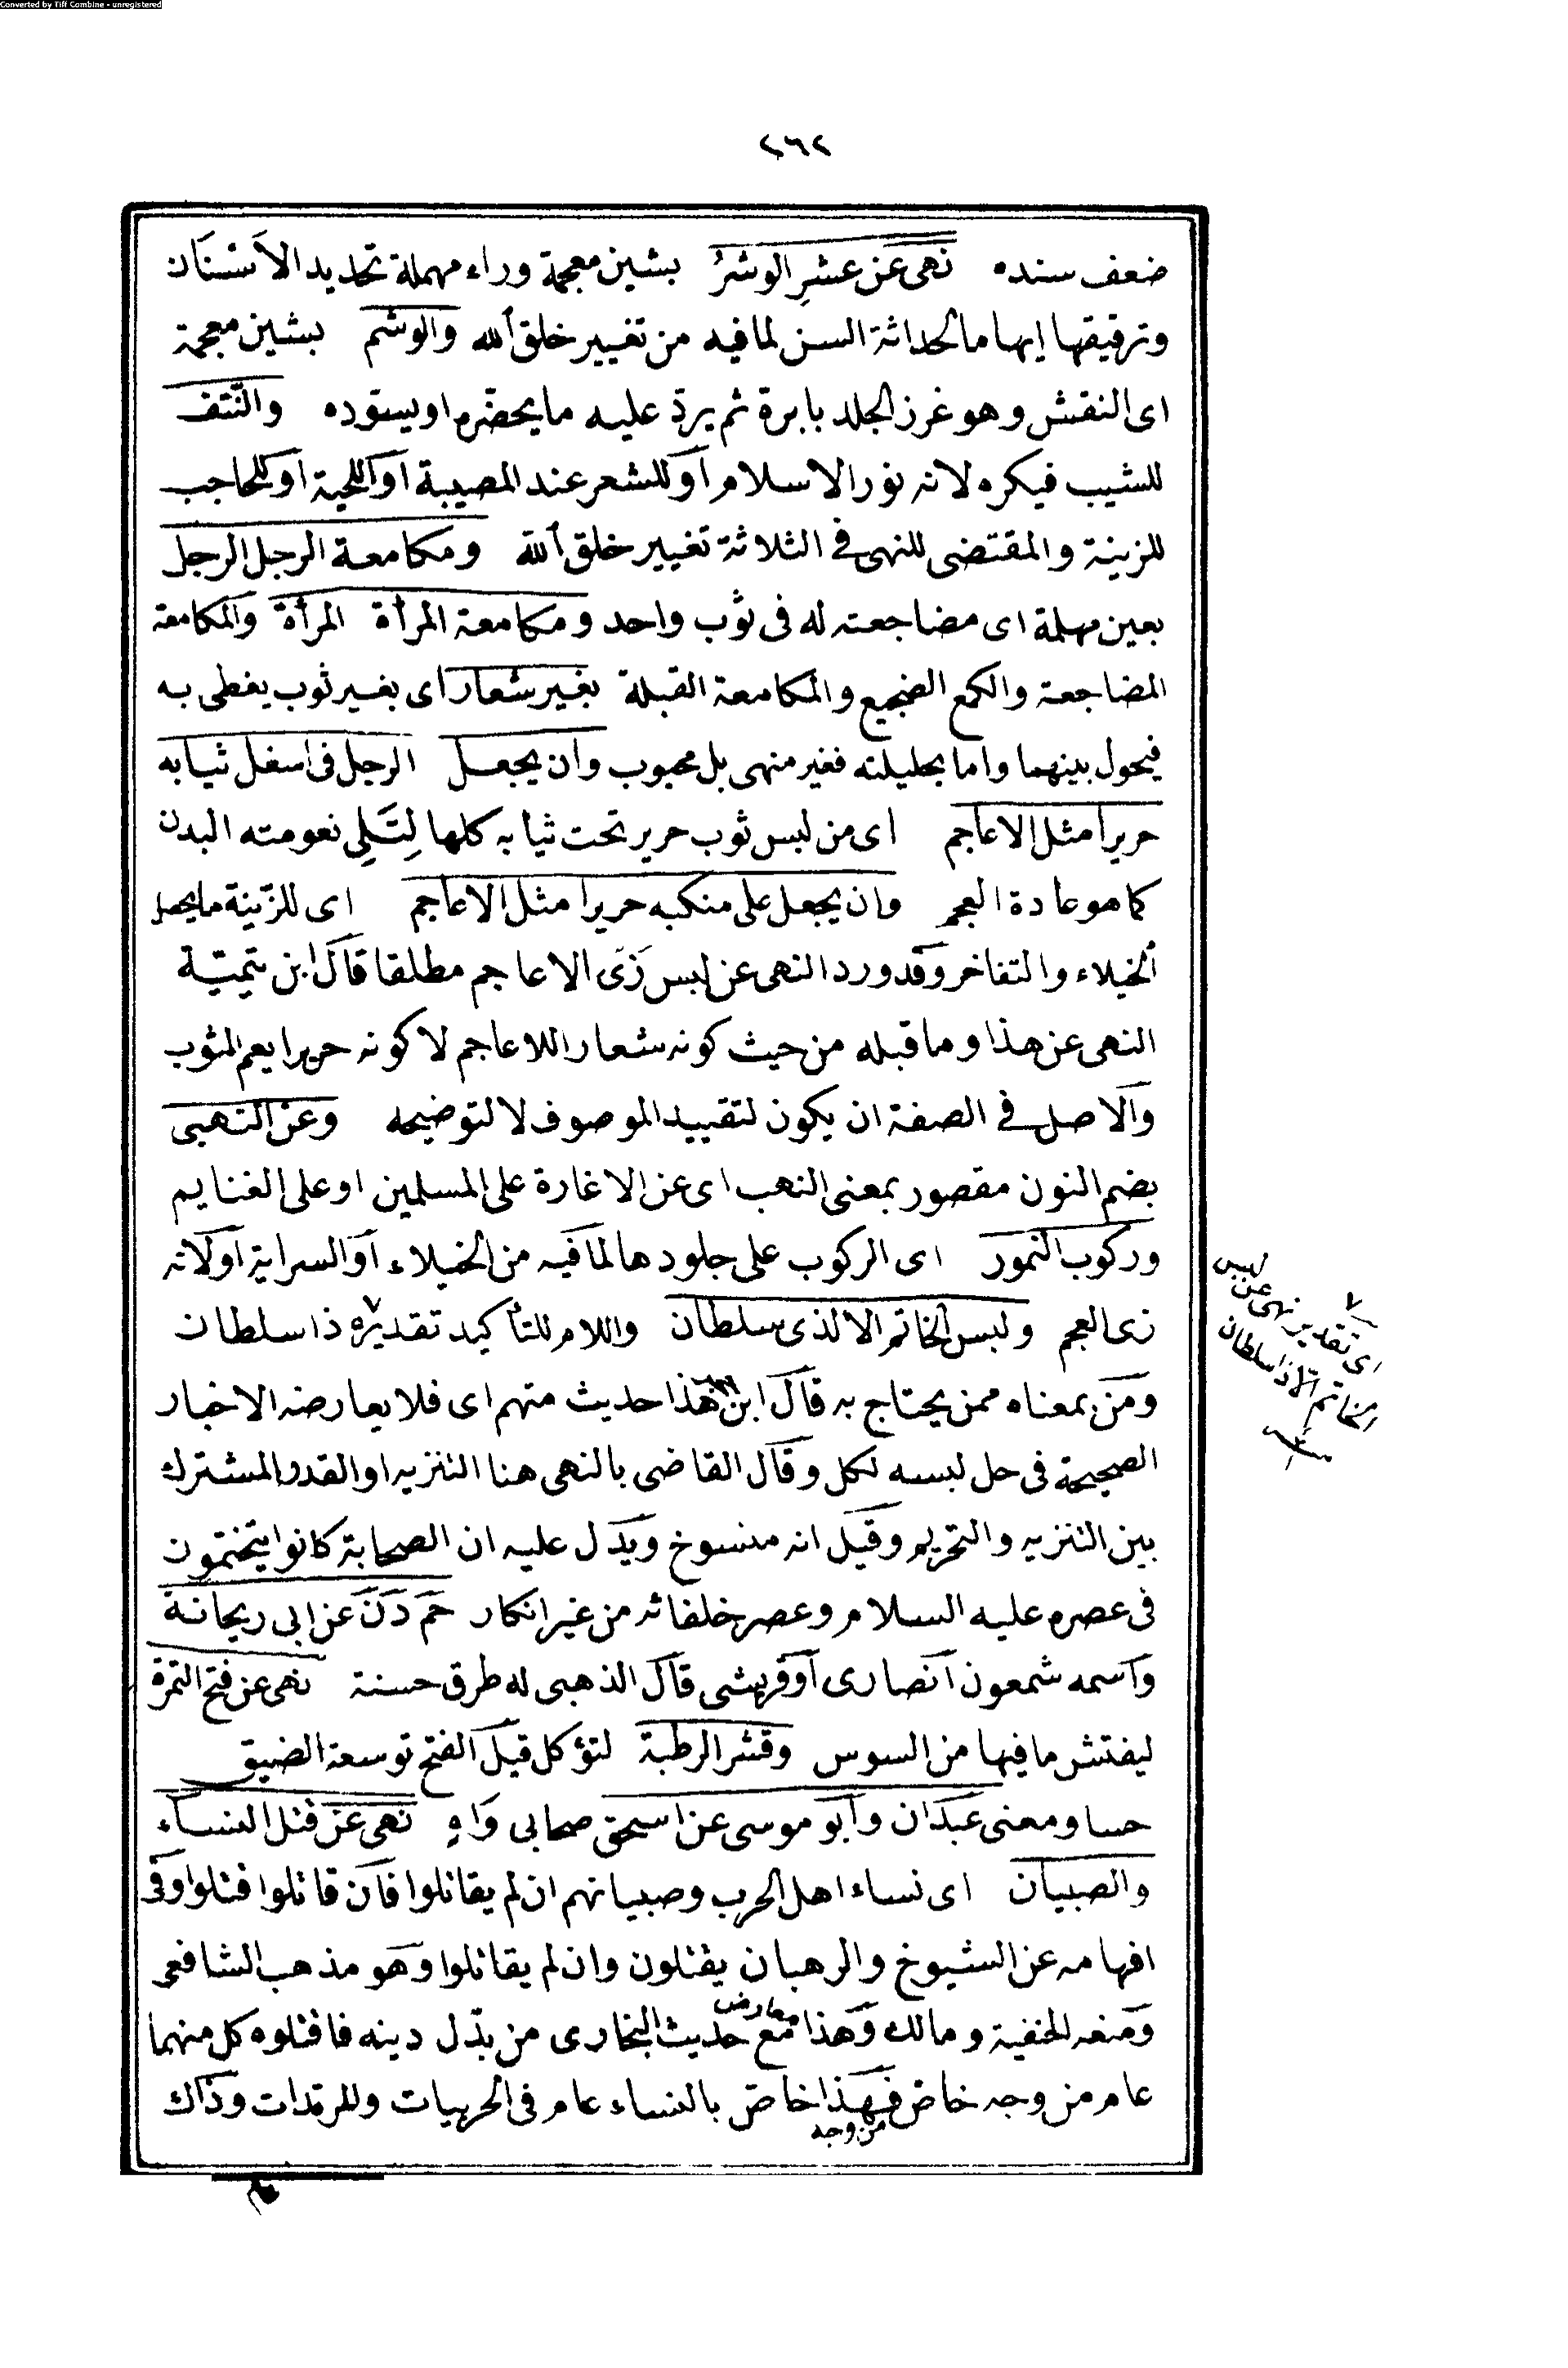 Converted by Tiff Combine - unregistered
٤٦٢
ضعف سنده نهى عن عشر الوشر بشين معجمة وراء مهملة تحديد الاسنان
وترقيقها ايهاما لحداثة السن لما فيه من تغيير خلق الله والوشم بشين معجمة
اى النقش وهو غرز الجلد بابرة ثم يرد عليه ما يحضره او يسوده والنتف
للشيب فيكره لانه نور الاسلام او للشعر عند المصيبة او اللحية او للحاجب
للزينة والمقتضى للنهى فى الثلاثة تغيير خلق الله ومكامعة الرجل الرجل
بعين مهملة اى مضاجعته له فى ثوب واحد ومكامعة المرأة المرأة والمكامعة
المضاجعة والكمع الضجيع والمكامعة القبلة بغير شعار اى بغير ثوب يغطى به
فيحول بينهما واما بحليلته فغير منهى بل محبوب وان يجعل الرجل فى اسفل ثيابه
حريرا مثل الاعاجم اى من لبس ثوب حرير تحت ثيابه كلها لتلى نعومته البدن
كما هو عادة العجم وان يجعل على منكبه حريرا مثل الاعاجم اى للزينة ما يحصل
الخيلاء والتفاخر وقد ورد النهى عن لبس زى الاعاجم مطلقا قال ابن تيمية
النهى عن هذا وما قبله من حيث كونه شعارا للاعاجم لا كونه حريرا يعم الثوب
والاصل فى الصفة ان يكون لتقييد الموصوف لا لتوضيحه وعن النهبى
بضم النون مقصور بمعنى النهب اى عن الاغارة على المسلمين او على الغنايم
وركوب النمور اى الركوب على جلودها لما فيه من الخيلاء او السراية او لانه
زى العجم ولبس الخاتم الا لذى سلطان واللام للتأكيد تقديره ٧ ذا سلطان
ومن بمعناه ممن يحتاج به قال ابن هذا حديث متهم اى فلا يعارضه الاخبار
الصحيحة فى حل لبسه لكل وقال القاضى بالنهى هنا التنزيه او القدر المشترك
بين التنزيه والتحريم وقيل انه منسوخ ويدل عليه ان الصحابة كانوا يتختمون
فى عصره عليه السلام وعصر خلفائه من غير انكار حم د ن عن ابى ريحانة
واسمه شمعون انصارى او قريشى قال الذهبى له طرق حسنة نهى عن فتح التمرة
ليفتش ما فيها من السوس وقشر الرطبة لتؤكل قيل الفتح توسعة الضيق
حسا ومعنى عبدان وابو موسى عن اسحق صحابى واه نهى عن قتل النساء
والصبيان اى نساء اهل الحرب وصبيانهم ان لم يقاتلوا فان قاتلوا قتلوا وفى
افهامه عن الشيوخ والرهبان يقتلون وان لم يقاتلوا وهو مذهب الشافعى
ومنعه الحنفية ومالك وهذا معارض مع حديث البخارى من بدل دينه فاقتلوه كل منهما
عام من وجه خاص من وجه فهذا خاص بالنساء عام فى الحربيات وللمرتدات وذاك
٧
اى تقدير نهى عن لبس
الخاتم الا ذا سلطان